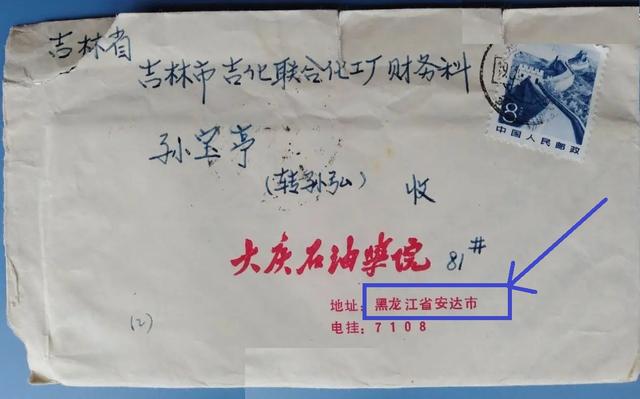 吉林省
吉林市吉化联合化工厂财务科
孙宝亭
(转孙弘) 收
8
中国人民邮政
大庆石油学院 81#
地址:黑龙江省安达市
电挂:7108
(2)